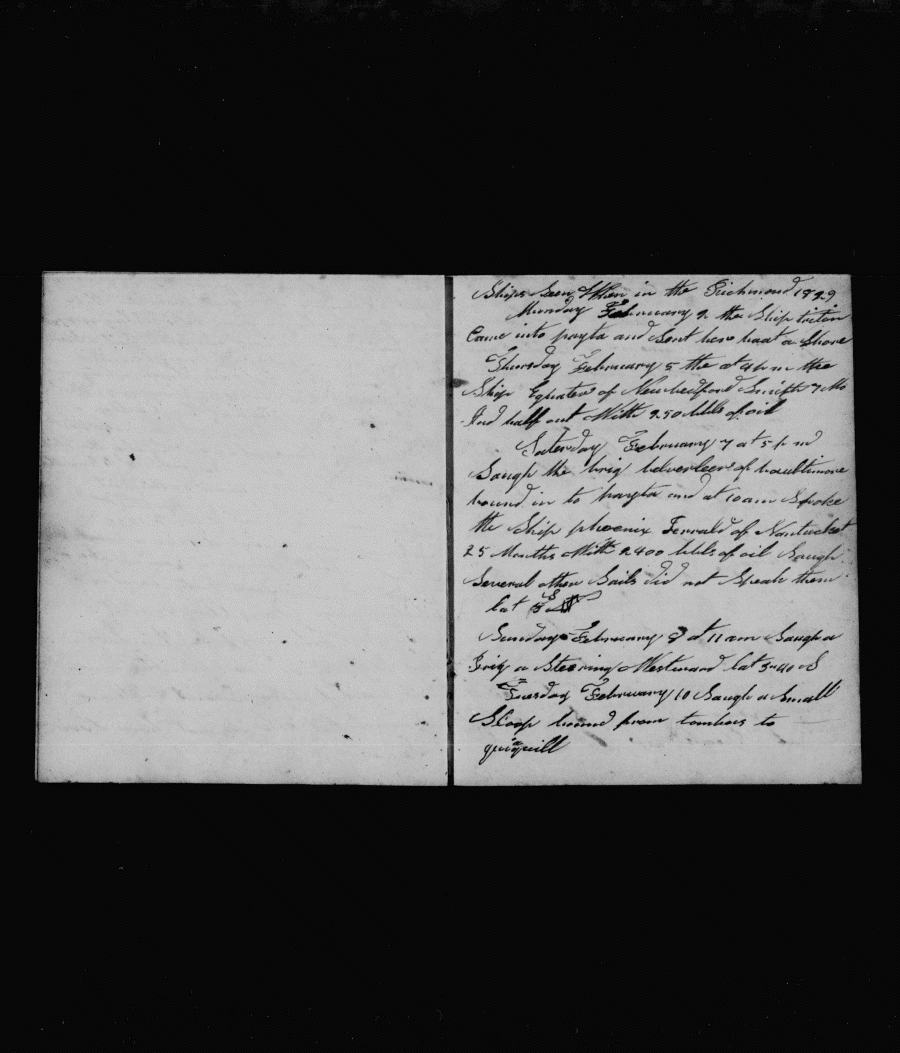 Ships Seen When in the Richmond 1829
Munday February 2 the Ship triton
Came into payta and Sent her boat a Shore
Thursday February 5 the at 4 pm the
Ship Equator of Newbedford Smith 7 Mo
And half out With 250 bbls of oil
Saterday February 7 at 5 pm
Saugh the brig of boultimore
bound in to payta and at 10 am Spoke
the Ship phoenix of Nantucket
25 Months With 2400 bbls of oil Saugh
Several other Sails Did not Speak them
lat 5 S
Sunday February 8 at 11 am Saugh a
Brig a Steering Westward lat 3-40 S
Tuesday February 10 Saugh a Small
Sloop bound from tombus to